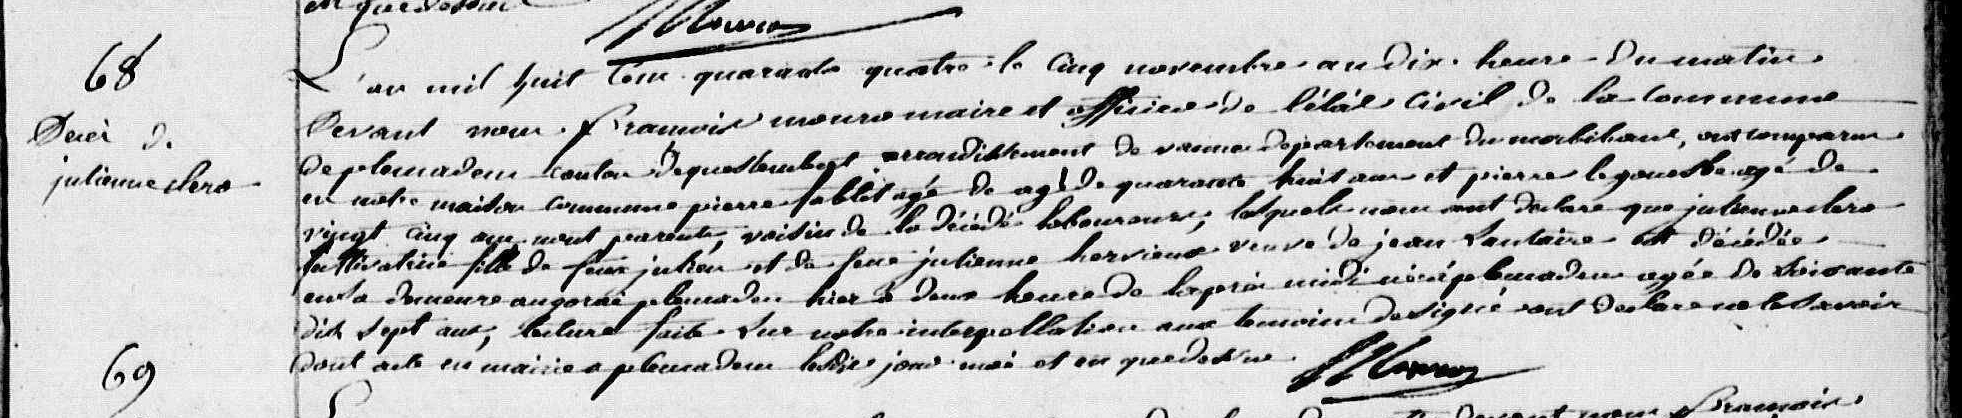 et que dessus
68
Décè de
julienne clero
L'an mil huit cent quarante quatre le cinq novembre au dix heure du matin
Devant nous francois mouro maire et officier de l'état civil de la commune
de plemadeu canton de questembert arrondissement de vanne departement du morbihan, ont comparu
en notre maison commune pierre tablet agé de agé de quarante huit ans et pierre legouesbe agé de
vingt cinq ans nont parents, voisin de la décédé laboureurs, lesquels nous ont declare que julienne clero
cultivatrice fille de feux julien et de feue julienne hervieux veuve de jean Lantaire est décédée
en sa demeure au goraé plemadeu hier à deux heure de laprès midi née à plemadeu agée de soixante
dix sept ans, lecture faite sur notre interpellation aux temoins de signé ont declare ne le savoir
dont acte en mairie a plemadeu lesdits jour moi et en que dessus
69
devant nous francois